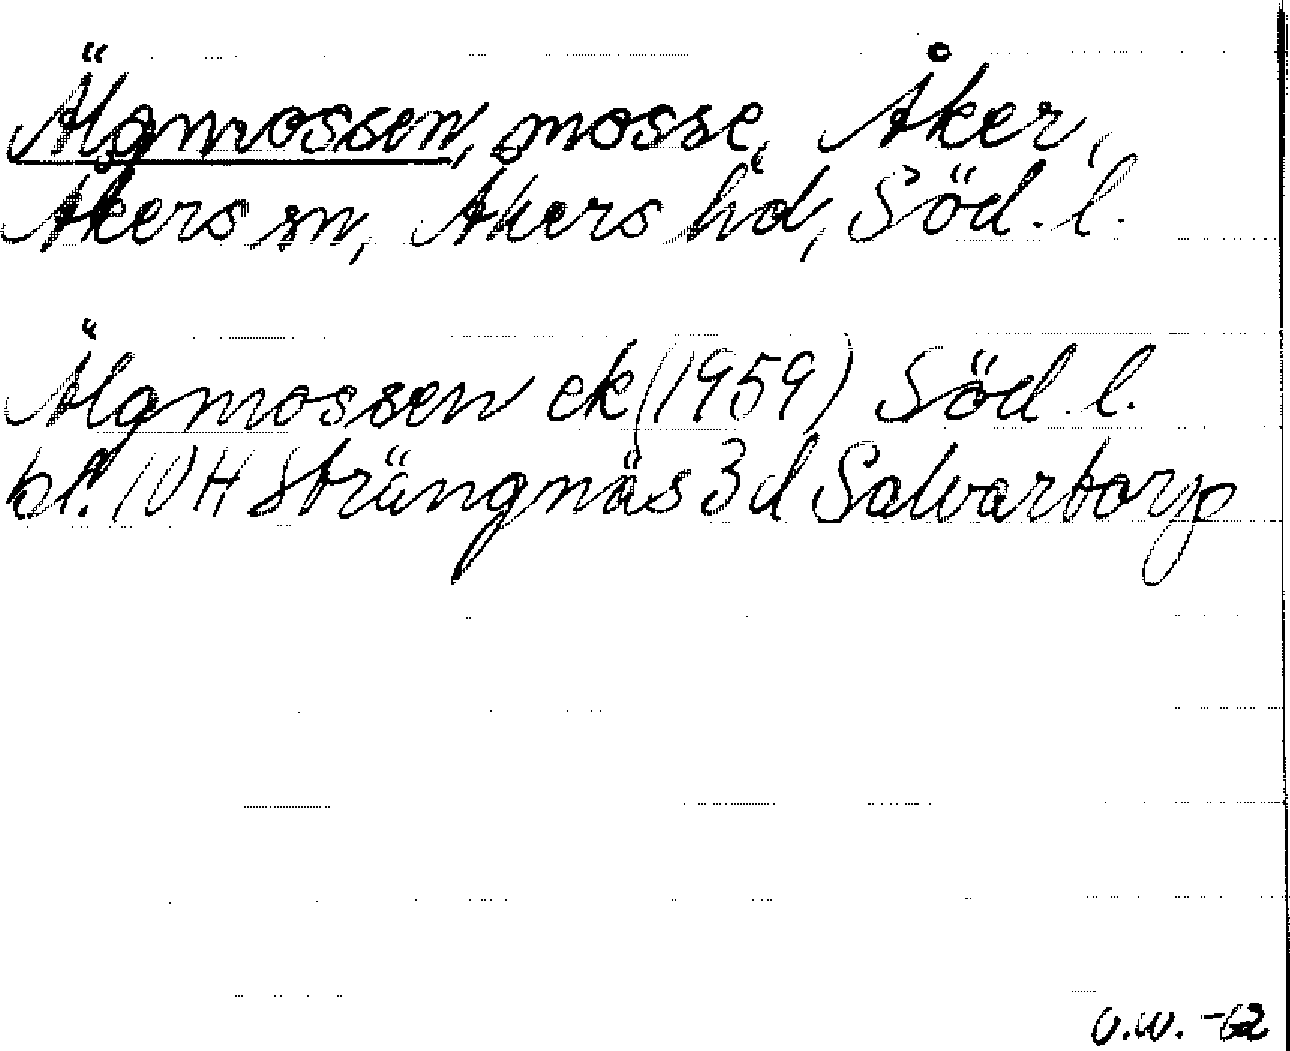 Älgmossen, mosse, Åker,
Åkers sn, Åkers hd, Söd. l.
Älgmossen ek (1959) Söd. l.
bl. 10H Strängnäs 3d Salvartorp
U.W. -62